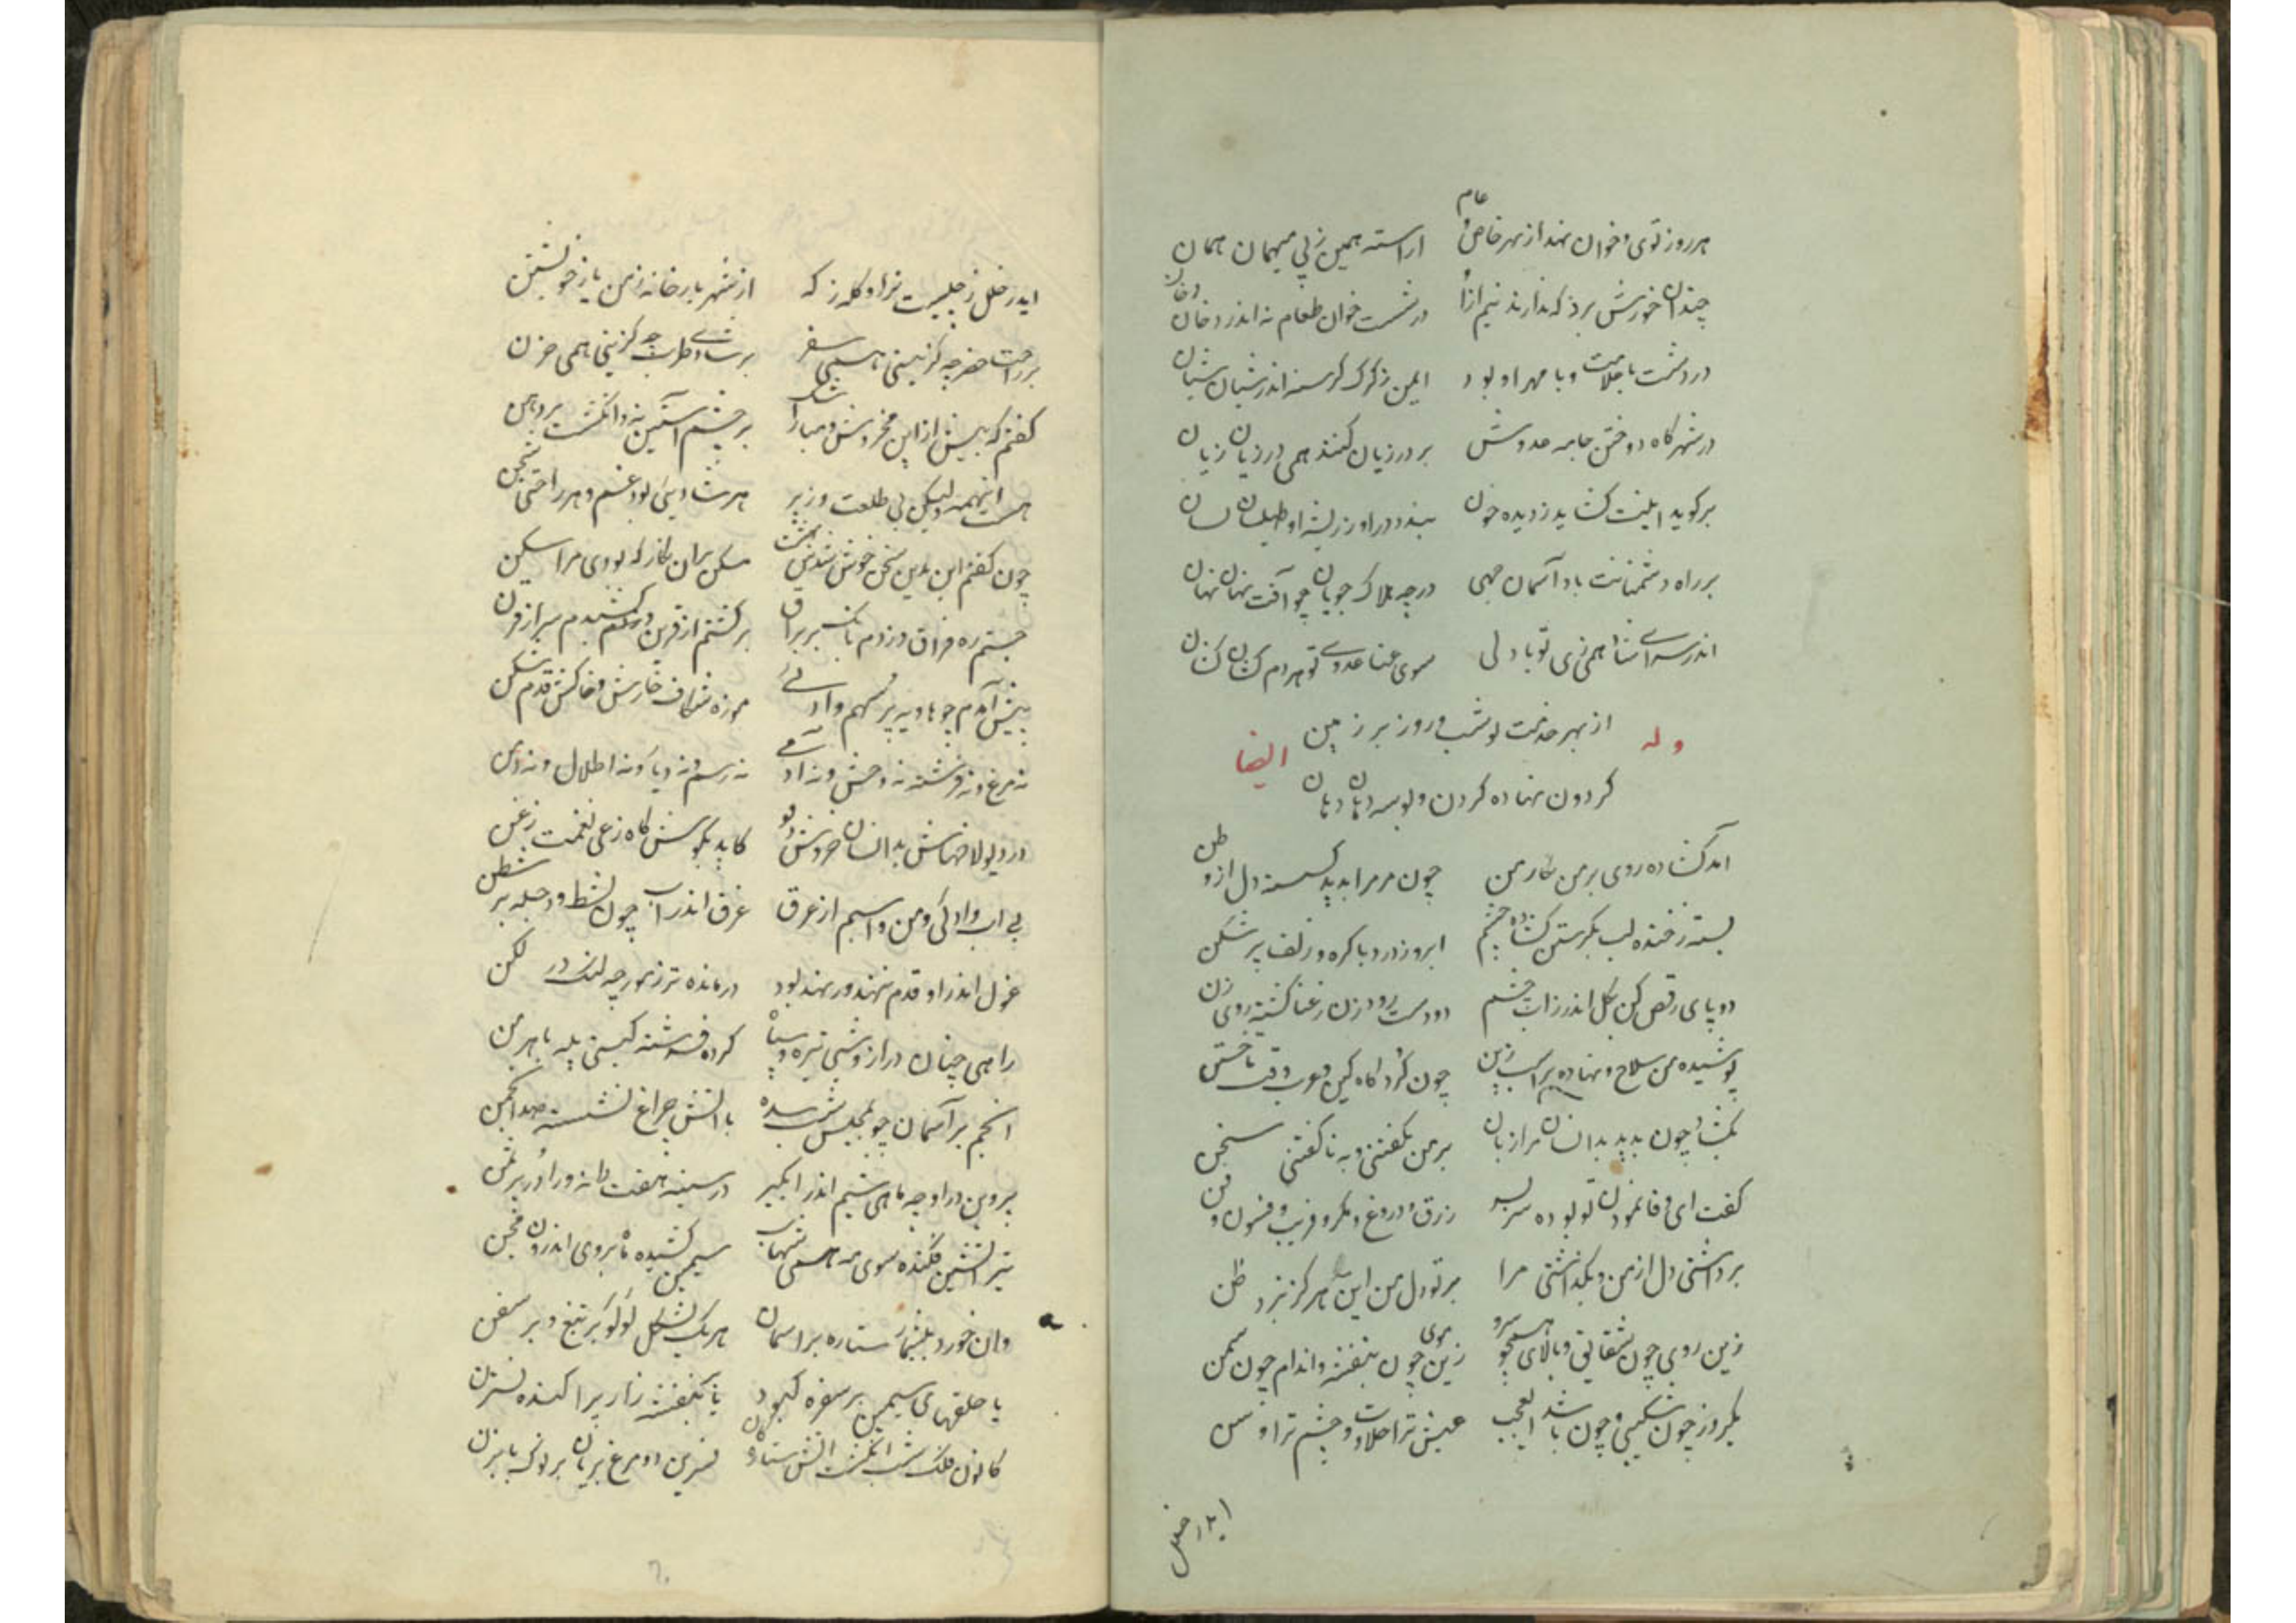 عام
هر روز نوی و خوان نهند از بهر خاص و اراسته همین ز پی میهمان همان
چندان خورش برد که ندارند نیم ازان در شست خوان طعام نه اندر دخان دخان
در دشت با جلالت و با مهر او بود ایمن ز کرک کرسنه اندر شبان شبان
در شهر کاه دوختن جامه عدوش بر درزیان کنند همی درزیان زیان
بر کوید ابلیت کشاید ز دیده خون بندد در او ز ریشه او طیلسان لسان
بر راه دشمنانت باد آسمان جهی در چه هلاک جویان چو آفت نهان نهان
اندر سرای شاهمی زی تو با دلی سوی عنا عدوی تو هر دم کنان کنان
از بهر خدمت تو شب و روز بر زمین
وله ایضا
کردون نهاده کردن و بوسه دهان دهان
آمد کشاده روی بر من نکار من چون مر مرا بدید کسسته دل از وطن
بسته ز خنده لب بکرستن کشاده چشم ابرو ز درد با کره و زلف پر شکن
دو پای رقص کن بکل اندر ز اب چشم دو دست رود زن ز عنا کشته روی زن
پوشیده من سلاح و نهاده بر اسب زین چون کرد کاه کین و عرب وقت تاختن
بکشاد چون بدید بدانسان مرا زبان بر من بکفتنی و به ناکفتنی سخن
کفت ای وفا نمودن تو بوده سر بسر زرق و دروغ و مکر و فریب و فسون و فن
برداشتی دل از من و بکذاشتی مرا بر تو دل من این هرکز نبرد ظن
زین روی چون شقایق و بالای همچو سرو زین موی چون بنفشه و اندام چون سمن
یکروز چون شکیبی و چون باشد ای عجب عیش ترا حلاوت و چشم ترا وسن
ایدر خلل
ایدر خلل ز چیست ترا و کله ز که از شهر یار خانه ز من یا ز خویشتن
بر راحت حضر چه کزینی همی سفر بر شادی و طرب چه کزینی همی حزن
کفتم که بیش ازین مخروش و مبار اشک بر چشم آستین نه و انکشت بر دهن
هست اینهمه ولیکن بی طلعت وزیر هر شادیی بود غم و هر راحتی شجن
چون کفتم این بدین سخن خوش نشد مسکن بران نکار که بودی مرا سکن
جستم ره فراق و زدم بانک بر براق برکشتم از قرین و کشیدم سر از قرن
پیش آمدم چو هاویه پر سهم وادیی موزه شکاف خارش و خاکش قدم شکن
نه مرغ و نه فرشته نه وحش و نه آدمی نه رسم و نه دیار و نه اطلال و نه دمن
در دیولاخهاش بدانسان خروش دیو کاید بکوش کاه زغی نغمت زغن
بی اب وادئی و من و اسبم از عرق غرق اندر اب چون بشط و دجله بر شطن
غول اندر او قدم ننهد ور نهد بود در مانده تر ز مورچه لنک در لکن
راهی چنان دراز و شبی تیره و سیاه کرده فرشته کیستی یله باهرمن
انجم بر آسمان چو بمجلس شب سده با اتش چراغ نشسته صد انجمن
پروین در او چه ماهی شیم اندر ابکیر در سینه هفت دانه ور او در بر ثمن
تیر اتشین فکنده سوی مه همی شهاب سیمین کشیده ماه بروی اندرون مجن
وان خورد بیشمار ستاره بر اسمان هر یک بشکل لولو بر تیغ و بر سفن
یا حلقهای سیمین بر سفره کبود یا بنفشه زار پراکنده نسترن
کانون فلک شب انکشت اتش ستاره نسرین دو مرغ بریان بر نوک بابزن